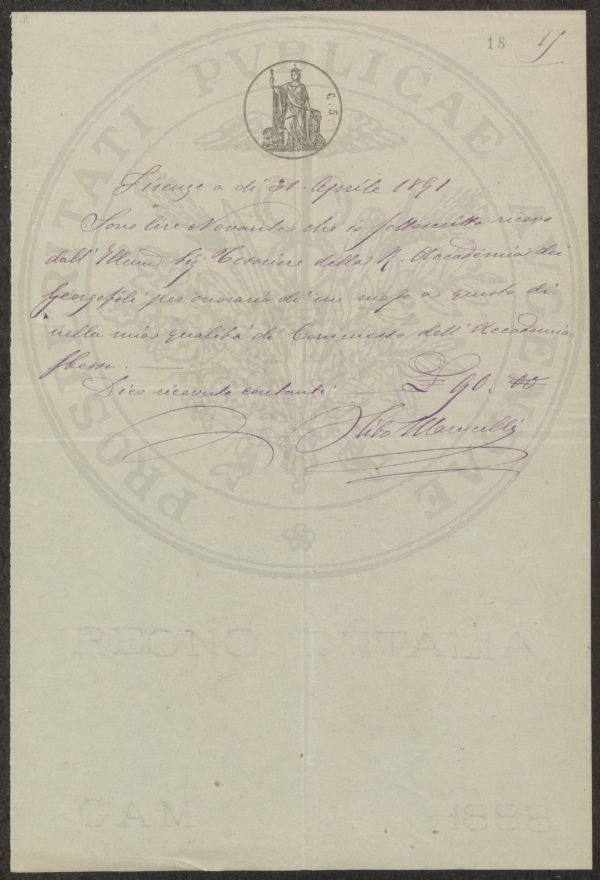 18 15
C. 5.
Firenze a dì 31. Aprile 1891
Sono lire Novanta che io sottoscritto ricevo
dall' Illmo Sig Tesoriere della R. Accademia dei
Georgofili per onorario di un mese a questo dì
nella mia qualità di Commesso dell' Accademia
stessa.
Dico ricevute contanti £ 90. 00
Marucelli
PROSPERITATI PVBLICAE AVGENDAE
REGNO D'ITALIA
CAM 1888